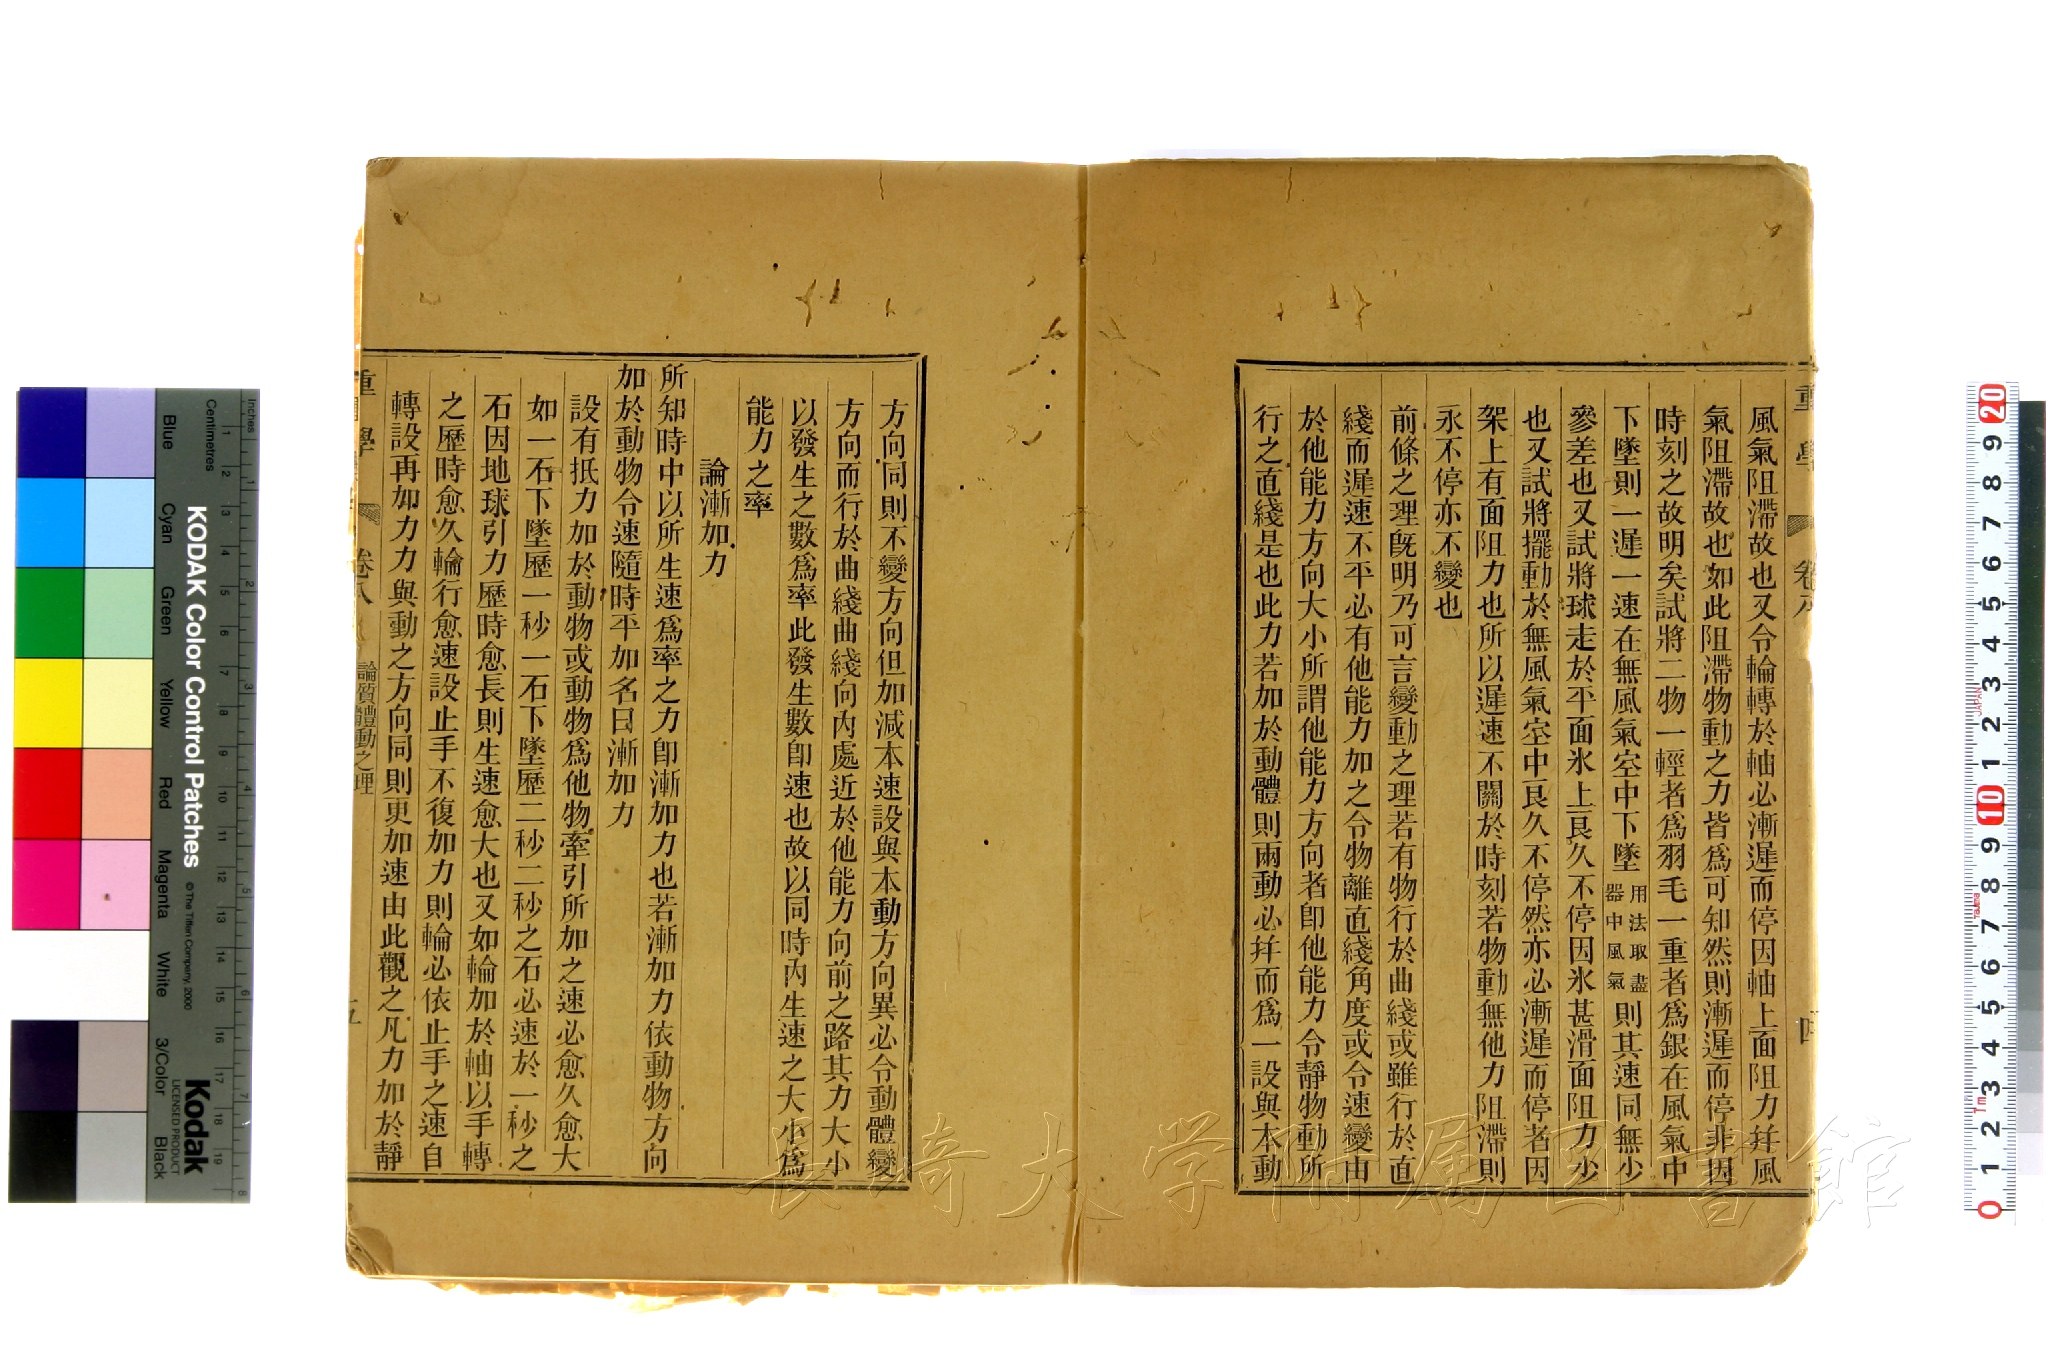 風氣阻滯故也又令輪轉於軸必漸遲而停因軸上面阻力幷風
氣阻滯故也如此阻滯物動之力皆爲可知然則漸遲而停非因
時刻之故明矣試將二物一輕者爲羽毛一重者爲銀在風氣中
下墜則一遲一速在無風氣空中下墜用法取盡器中風氣則其速同無少
參差也又試將球走於平面氷上良久不停因氷甚滑面阻力少
也又試將擺動於無風氣空中良久不停然亦必漸遲而停者因
架上有面阻力也所以遲速不關於時刻若物動無他力阻滯則
永不停亦不變也
前條之理旣明乃可言變動之理若有物行於曲綫或雖行於直
綫而遲速不平必有他能力加之令物離直綫角度或令速變由
於他能力方向大小所謂他能力方向者卽他能力令靜物動所
行之直綫是也此力若加於動體則兩動必幷而爲一設與本動
重學
卷八
四
方向同則不變方向但加減本速設與本動方向異必令動體變
方向而行於曲綫曲綫向內處近於他能力向前之路其力大小
以發生之數爲率此發生數卽速也故以同時內生速之大小爲
能力之率
論漸加力
所知時中以所生速爲率之力卽漸加力也若漸加力依動物方向
加於動物令速隨時平加名曰漸加力
設有抵力加於動物或動物爲他物牽引所加之速必愈久愈大
如一石下墜歷一秒一石下墜歷二秒二秒之石必速於一秒之
石因地球引力歷時愈長則生速愈大也又如輪加於軸以手轉
之歷時愈久輪行愈速設止手不復加力則輪必依止手之速自
轉設再加力力與動之方向同則更加速由此觀之凡力加於靜
重學
卷八
論質體動之理
五
長崎大学附属図書館
KODAK Color Control Patches
© The Tiffen Company, 2000
Kodak
LICENSED PRODUCT
Inches
Centimetres
Blue
Cyan
Green
Yellow
Red
Magenta
White
3/Color
Black
1 2 3 4 5 6 7 8 9 10 11 12 13 14 15 16 17 18 19
1 2 3 4 5 6 7 8
20 9 8 7 6 5 4 3 2 1 10 9 8 7 6 5 4 3 2 1 0
JAPAN